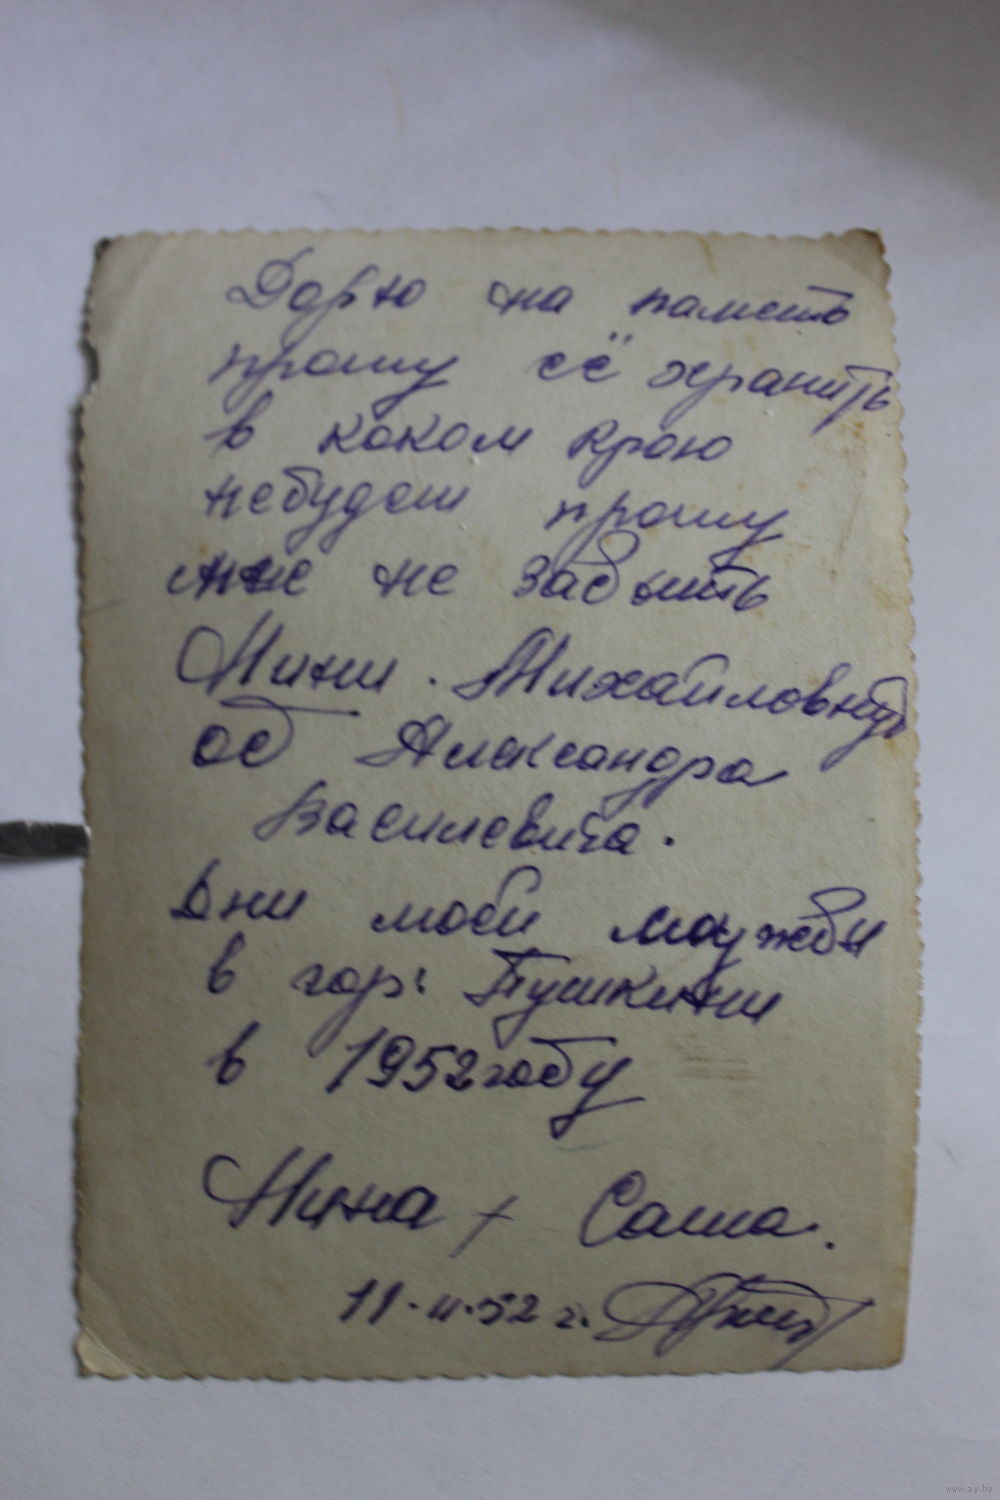 Дорю на паметь
прошу её хранить
в коком краю
небудеш прошу
мне не забыть
Нини. Михайловнуй
од Александра
Василевича.
Дни моей
в гор. Пушкини
в 1952 году
Нина + Саша.
11.II.52 г.
www.ay.by